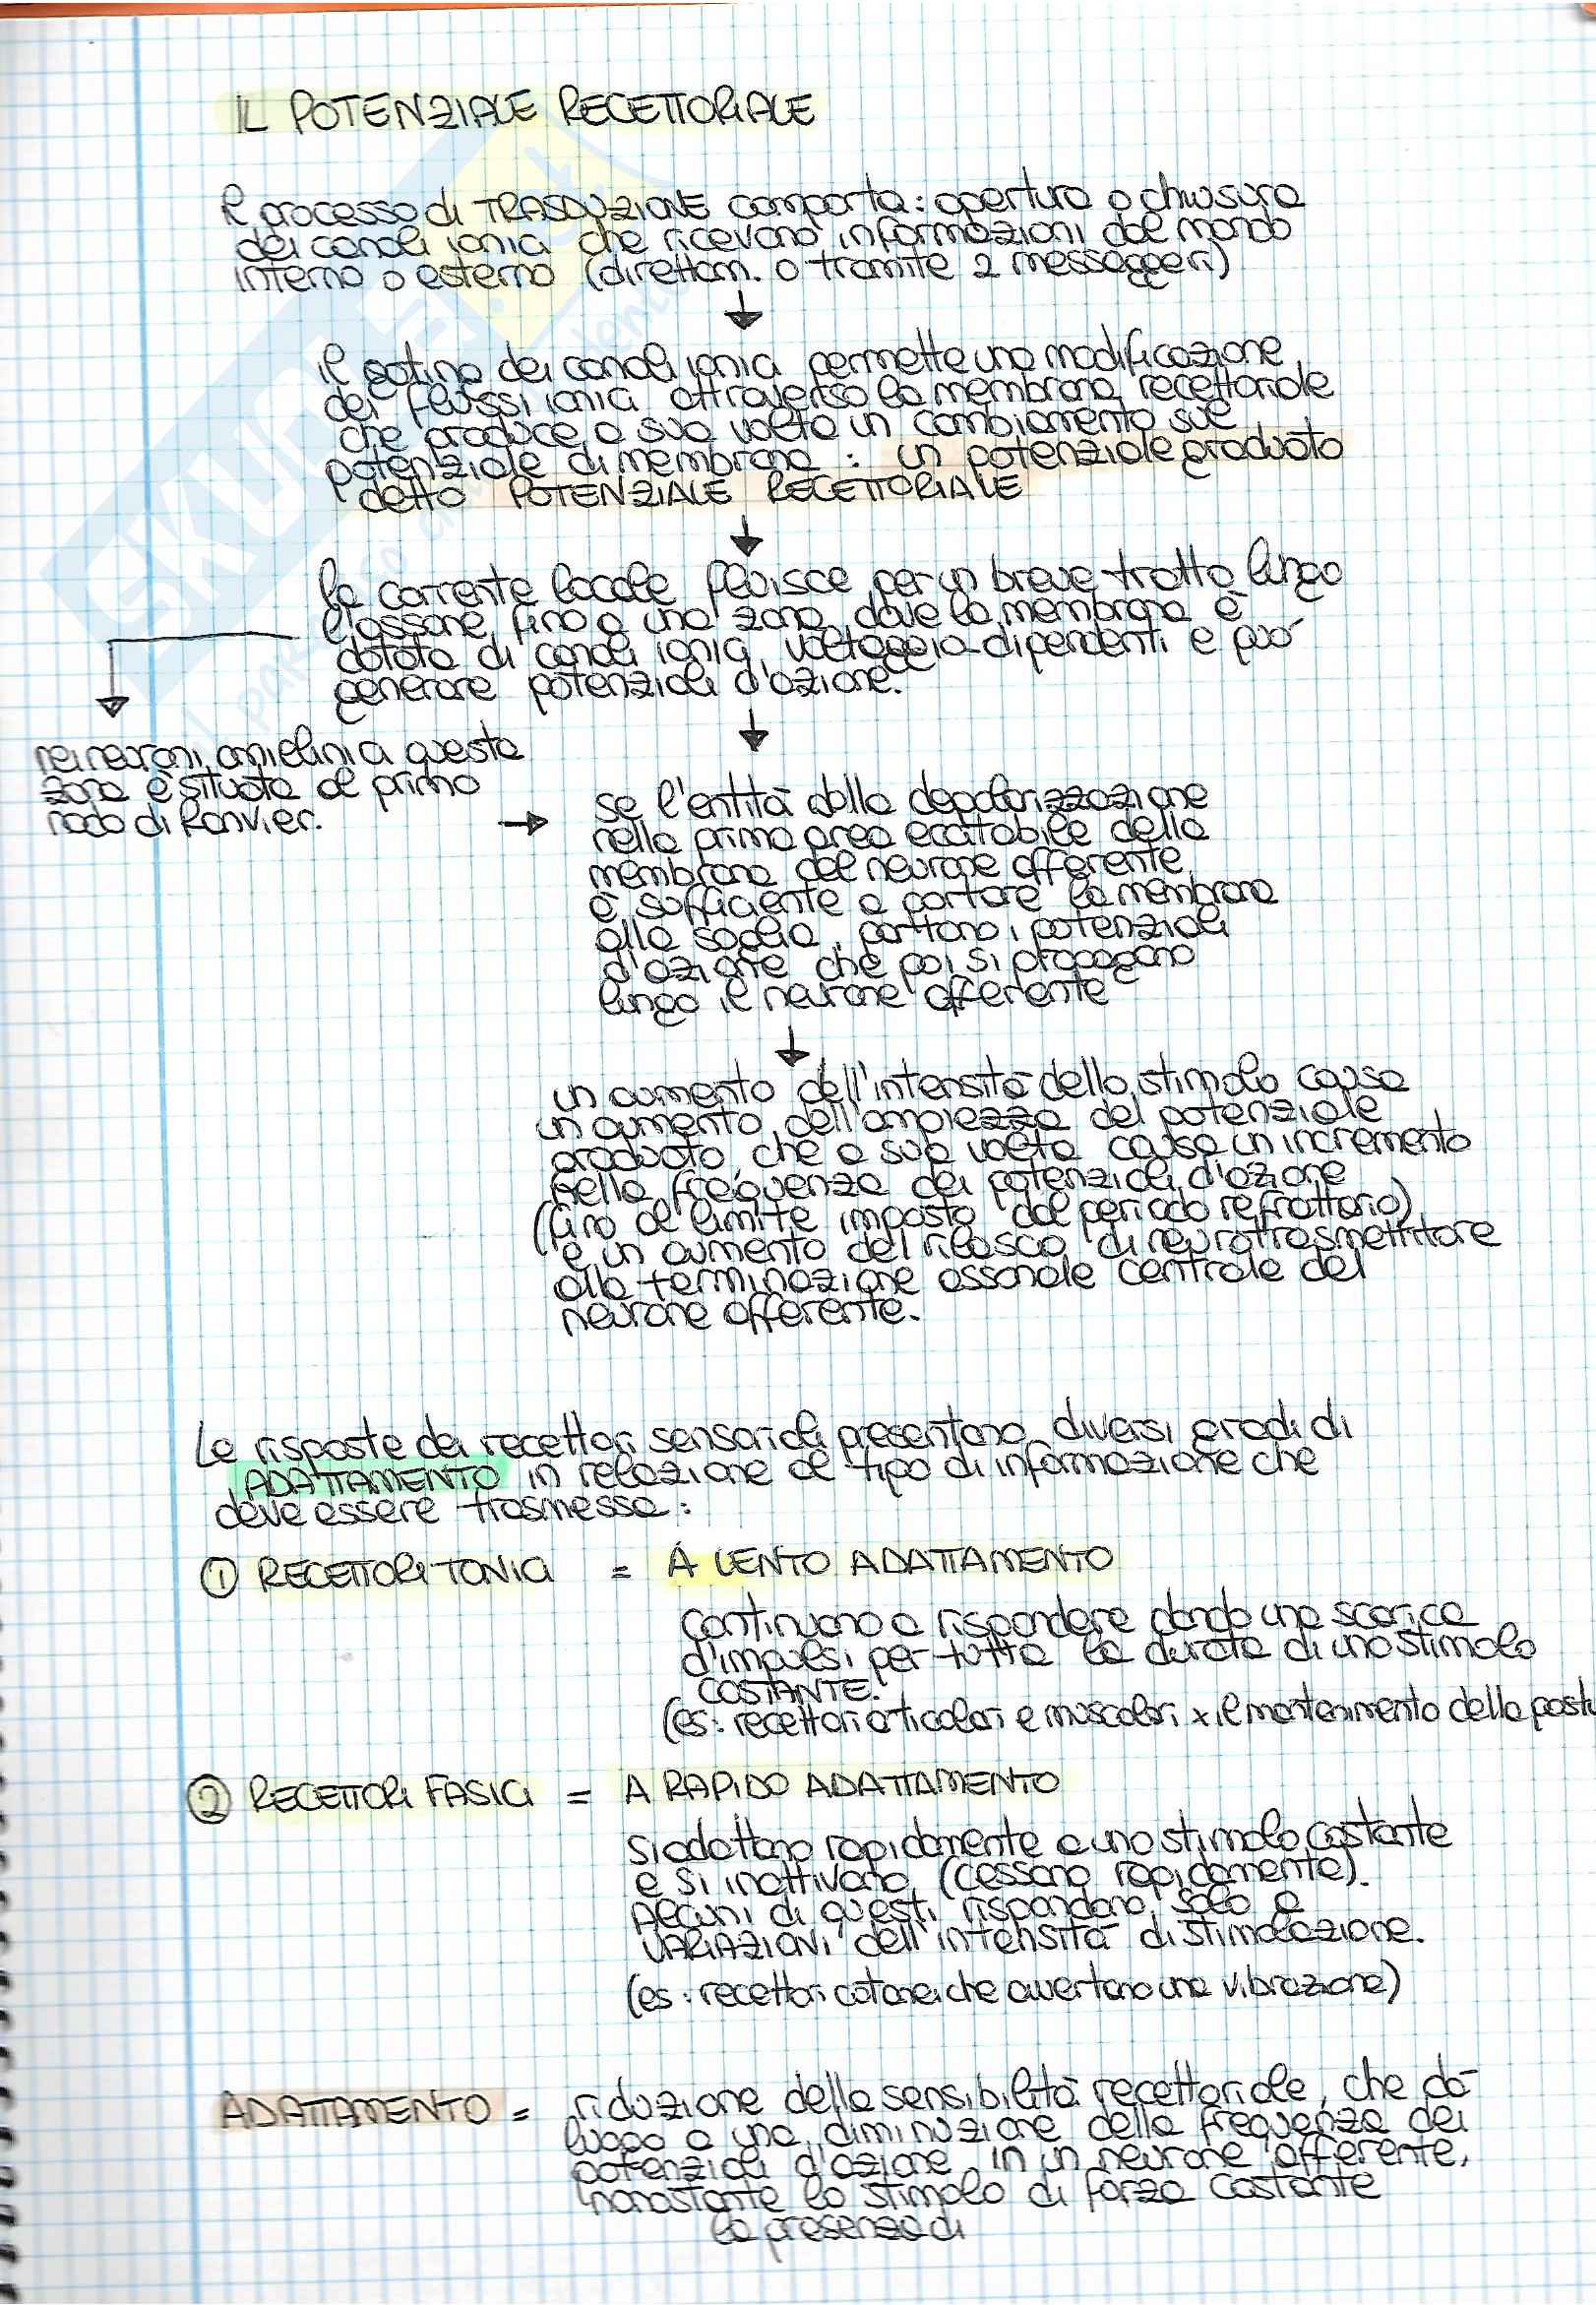 IL POTENZIALE RECETTORIALE
Il processo di TRASDUZIONE comporta: apertura o chiusura
dei canali ionici che ricevono informazioni dal mondo
interno o esterno (direttam. o tramite 2 messaggeri)
il gating dei canali ionici permette una modificazione
dei flussi ionici attraverso la membrana recettoriale
che produce a sua volta un cambiamento sul
potenziale di membrana: un potenziale graduato
detto POTENZIALE RECETTORIALE
la corrente locale fluisce per un breve tratto lungo
l'assone fino a una zona dove la membrana è
dotata di canali ionici voltaggio-dipendenti e può
generare potenziali d'azione.
nei neuroni mielinici questa
zona è situata al primo
nodo di Ranvier.
se l'entità della depolarizzazione
nella prima area eccitabile della
membrana del neurone afferente
è sufficiente a portare la membrana
alla soglia, partono i potenziali
d'azione che poi si propagano
lungo il neurone afferente
un aumento dell'intensità dello stimolo causa
un aumento dell'ampiezza del potenziale
graduato, che a sua volta causa un incremento
nella frequenza dei potenziali d'azione
(fino al limite imposto dal periodo refrattario)
e un aumento del rilascio di neurotrasmettitore
alla terminazione assonale centrale del
neurone afferente.
Le risposte dei recettori sensoriali presentano diversi gradi di
ADATTAMENTO in relazione al tipo di informazione che
deve essere trasmessa:
① RECETTORI TONICI = A LENTO ADATTAMENTO
continuano a rispondere dando una scarica
d'impulsi per tutta la durata di uno stimolo
COSTANTE.
(es: recettori articolari e muscolari x il mantenimento della postu
② RECETTORI FASICI = A RAPIDO ADATTAMENTO
si adattano rapidamente a uno stimolo costante
e si inattivano (cessano rapidamente).
Alcuni di questi rispondono solo a
VARIAZIONI dell'intensità di stimolazione.
(es: recettori cutanei che avvertono una vibrazione)
ADATTAMENTO = riduzione della sensibilità recettoriale, che dà
luogo a una diminuzione della frequenza dei
potenziali d'azione in un neurone afferente,
nonostante lo stimolo di forza costante
la presenza di